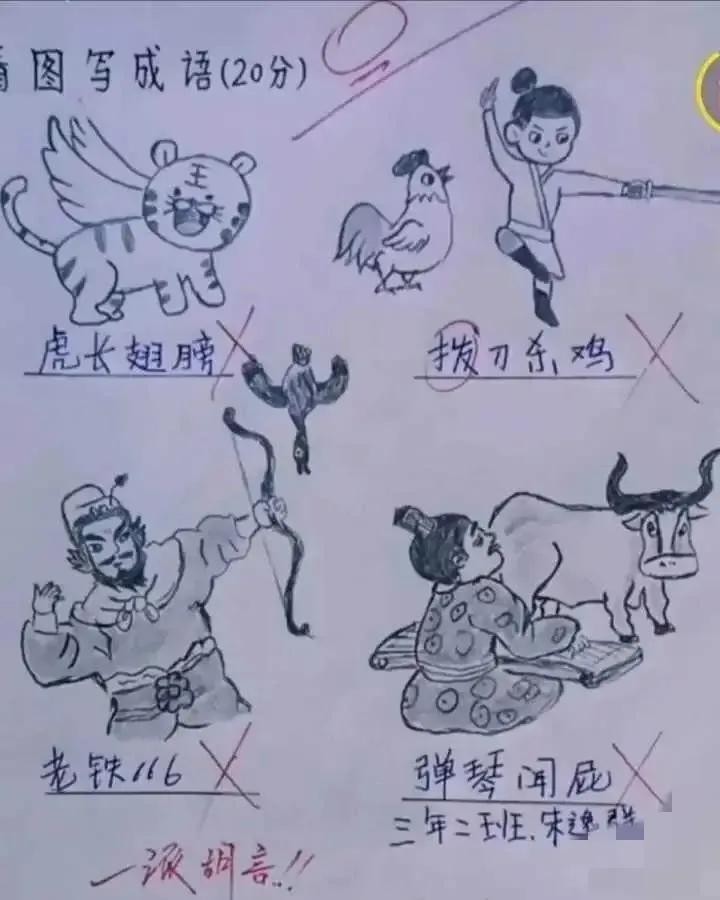 看图写成语(20分)
0
虎长翅膀
拨刀杀鸡
老铁116
弹琴闻屁
三年二班.朱
一派胡言..!!